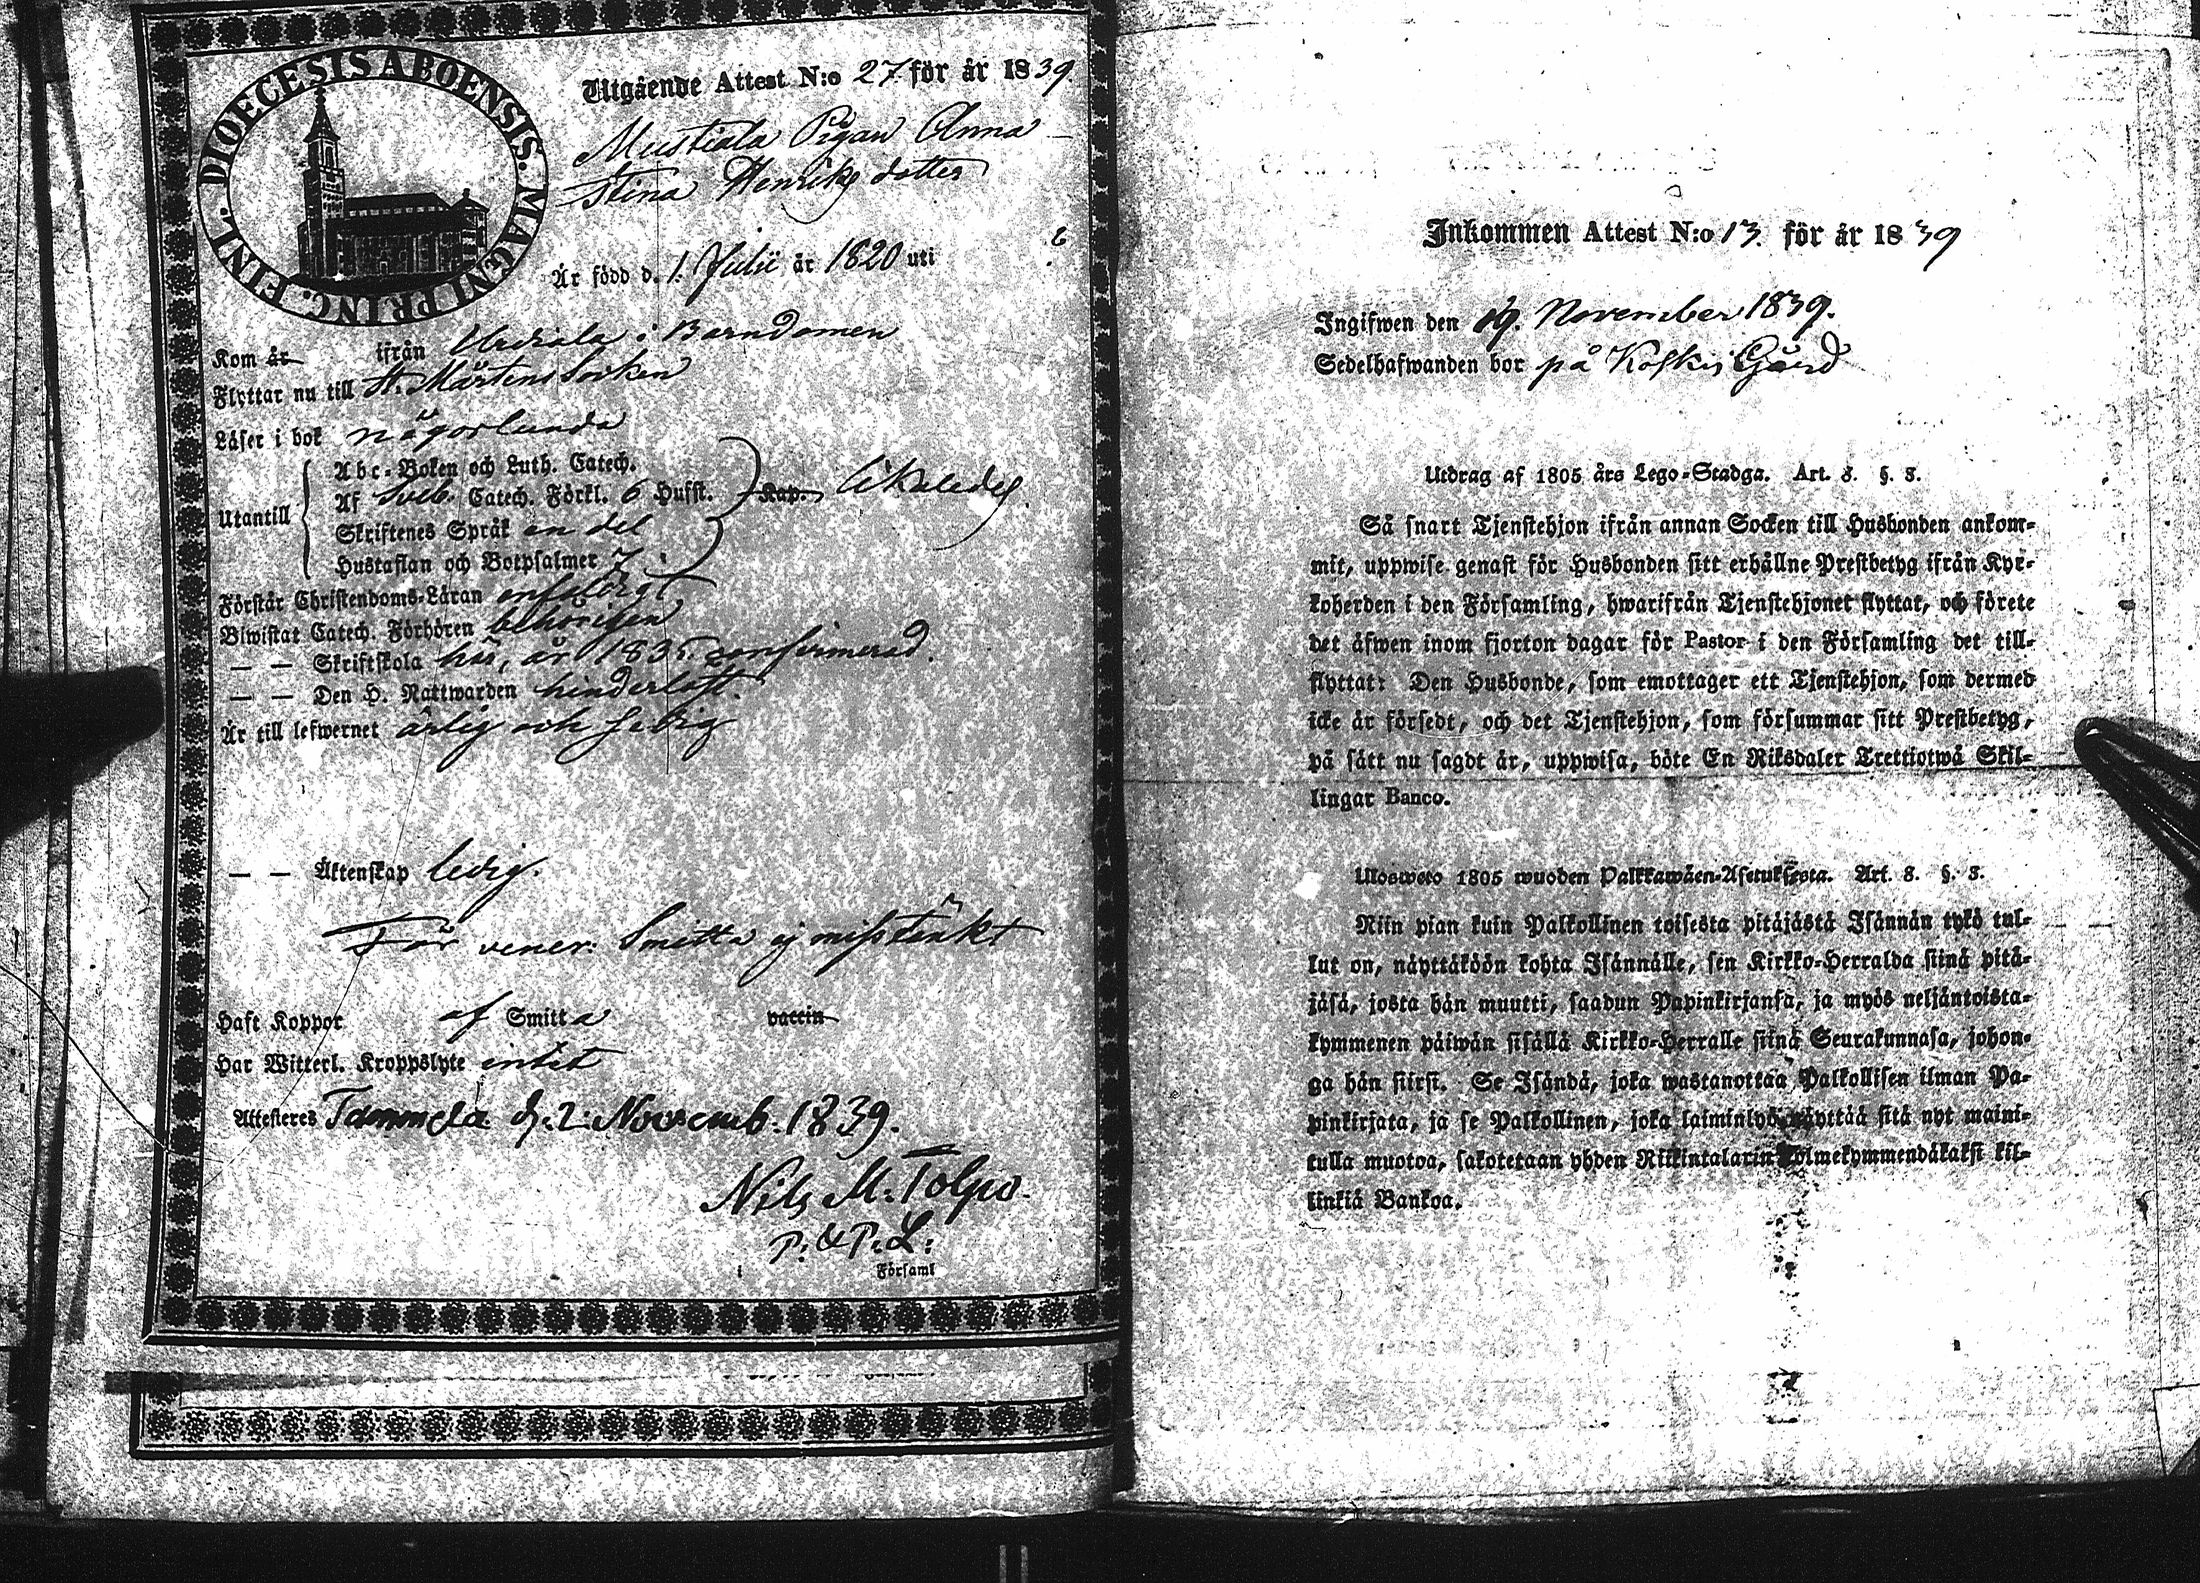 DIOECESIS ABOENSIS. MAGNI PRINC. FINL.
Utgående Attest N:o 27. för år 1839.
Mustiala Pigan Anna
Stina Henriks dotter
Är född d. 1. Julii år 1820 uti
Kom år ifrån Urdiala i Barndomen
Flyttar nu till St. Mårtens Socken
Läser i bok någorlunda
Utantill
Abc-Boken och Luth. Catech.
Af Sveb. Catech. Förkl. 6 Hufst. Kap. likaledes
Skriftenes Språk en del
Hustaflan och Botpsalmer 7.
Förstår Christendoms-Läran enfaldigt
Biwistat Catech. Förhören behörigen
— — Skriftskola här, är 1835 confirmerad.
— — Den H. Nattwarden hinderlöst.
Är till lefwernet ärlig och sedig
— — Äktenskap ledig.
För vener. Smitta ej misstänkt
Haft Koppor af Smitta vaccin
Har Witterl. Kroppslyte intet
Attesteres Tammela d. 2. Novemb. 1839.
Nils M. Tolpo.
P: & P: L:
i Församl
Inkommen Attest N:o 13. för år 1839
Ingifwen den 19. November 1839.
Sedelhafwanden bor på Koskis Gård
Utdrag af 1805 års Lego-Stadga. Art. 8. §. 8.
Så snart Tjenstehjon ifrån annan Socken till Husbonden ankom-
mit, uppwise genast för Husbonden sitt erhållne Prestbetyg ifrån Kyr-
koherden i den Församling, hwarifrån Tjenstehjonet flyttat, och förete
det äfwen inom fjorton dagar för Pastor i den Församling det till-
flyttat: Den Husbonde, som emottager ett Tjenstehjon, som dermed
icke är försedt, och det Tjenstehjon, som försummar sitt Prestbetyg,
på sätt nu sagdt är, uppwisa, böte En Riksdaler Trettiotwå Skil-
lingar Banco.
Ulosweto 1805 wuoden Palkkawäen-Asetuksesta. Art. 8. §. 8.
Niin pian kuin Palkollinen toisesta pitäjästä Isännän tykö tul-
lut on, näyttäköön kohta Isännälle, sen Kirkko-Herralda siinä pitä-
jäsä, josta hän muutti, saadun Papinkirjansa, ja myös neljäntoista-
kymmenen päiwän sisällä Kirkko-Herralle siinä Seurakunnasa, johon-
ga hän siirsi. Se Isändä, joka wastanottaa Palkollisen ilman Pa-
pinkirjata, ja se Palkollinen, joka laiminlyö näyttää sitä nyt maini-
tulla muotoa, sakotetaan yhden Riikintalarin kolmekymmendäkaksi kil-
linkiä Bankoa.